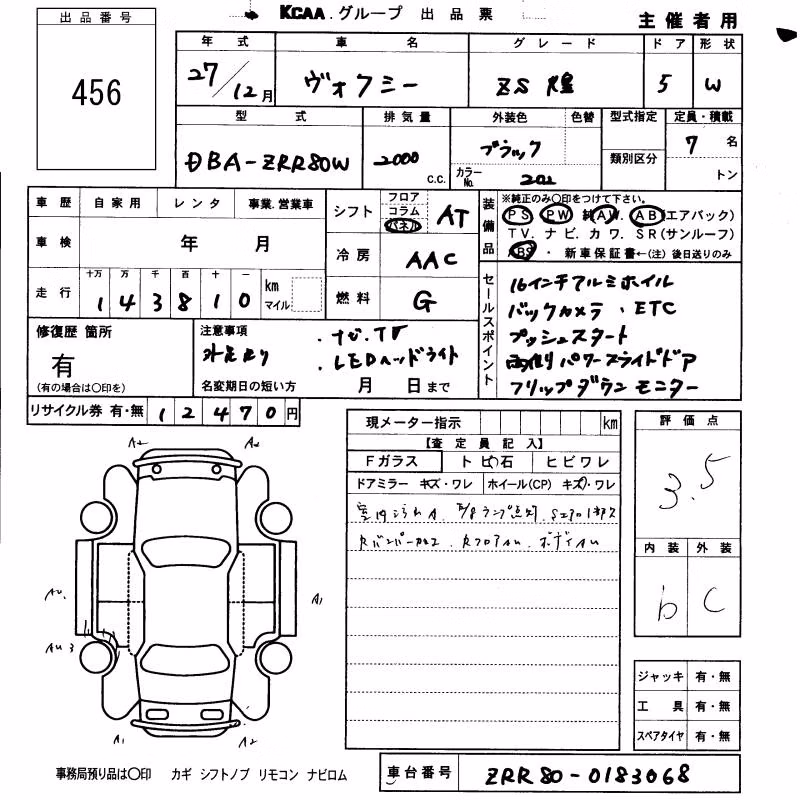 KCAA.グループ 出品票
主催者用
出品番号
456
年式 車名 グレード ドア 形状
27/12月 ヴォクシー ZS 煌 5 W
型式 排気量 外装色 色替 型式指定 定員・積載
DBA-ZRR80W 2000 c.c. ブラック 類別区分 7 名
カラーNo. 202 トン
車歴 自家用 レンタ 事業.営業車
シフト フロア コラム パネル AT
装備品 ※純正のみ〇印をつけて下さい。
PS PW 純AW. AB(エアバック)
TV. ナビ. カワ. SR(サンルーフ)
ABS・ 新車保証書←(注)後日送りのみ
車検 年 月
冷房 AAC
走行 十万 万 千 百 十 一 km マイル
1 4 3 8 1 0
燃料 G
セールスポイント
16インチアルミホイル
バックカメラ、ETC
プッシュスタート
両側パワースライドドア
フリップダウンモニター
修復歴 箇所
有
(有の場合は〇印を)
注意事項
・ナビ.TV
・LEDヘッドライト
名変期日の短い方 月 日まで
リサイクル券 有・無 1 2 4 7 0 円
現メーター指示 km
【査定員記入】
Fガラス トビ石 ヒビワレ
ドアミラー キズ・ワレ ホイール(CP) キズ・ワレ
評価点
3.5
内装 外装
b C
A2 A2
A1
AU3
A1 A2
ジャッキ 有・無
工具 有・無
スペアタイヤ 有・無
事務局預り品は〇印 カギ シフトノブ リモコン ナビロム
車台番号 ZRR80-0183068